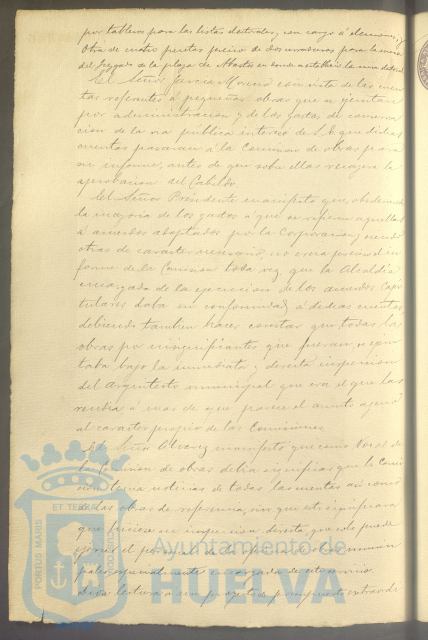 por tableros para las listas electorales, con cargo á elecciones, y
otra de cuatro pesetas precio de dos para la mesa
del Juzgado de la plaza de Abastos en donde
El Señor García Moreno con vista de las cuen-
tas referentes á pequeñas obras que se ejecutan
por administracion y de los gastos de conserva-
cion de la via pública interesó de S.E. que dichas
cuentas pasaran á la Comision de obras para
su informe, antes de que sobre ellas recayera la
aprobacion del Cabildo.
El Señor Presidente manifestó que, obedeciendo
la mayoria de los gastos á que se refieren aquellas
á acuerdos adoptados por la Corporacion y siendo
otras de caracter necesario, no creia preciso el in-
forme de la Comision toda vez que la Alcaldia
encargada de la ejecucion de los acuerdos Capi-
tulares daba su conformidad á dichas cuentas
debiendo tambien hacer constar que todas las
obras por insignificantes que fueran, se ejecu-
taba bajo la inmediata y directa inspeccion
del Arquitecto municipal que era el que las
recibia á mas de que parece el asunto ageno
al caracter propio de las Comisiones.
El Señor Alvarez manifestó que como Vocal de
la Comision de obras debia significar que la Comi-
sion tenia noticias de todas las cuentas asi como
de las obras de referencia, sin que esto significara
que hiciese su inspeccion directa, que solo puede
ejercer el personal de la oficina de obras munici-
pales especialmente encargada de este servicio.
Dióse lectura á un proyecto de presupuesto extraordi-
PORTUS MARIS
ET TERRAE
CUSTODIA
Ayuntamiento de
HUELVA